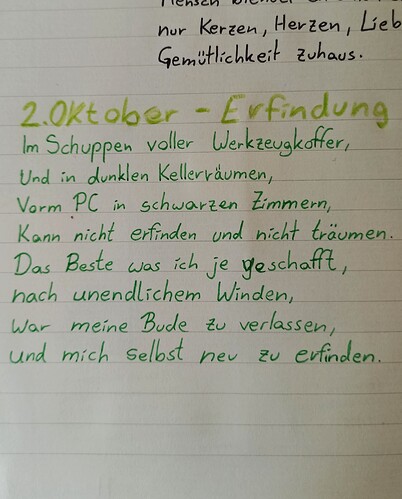 nur Kerzen, Herzen, Lieb
Gemütlichkeit zuhaus.
2. Oktober - Erfindung
Im Schuppen voller Werkzeugkoffer,
Und in dunklen Kellerräumen,
Vorm PC in schwarzen Zimmern,
Kann nicht erfinden und nicht träumen.
Das Beste was ich je geschafft,
nach unendlichem Winden,
War meine Bude zu verlassen,
und mich selbst neu zu erfinden.